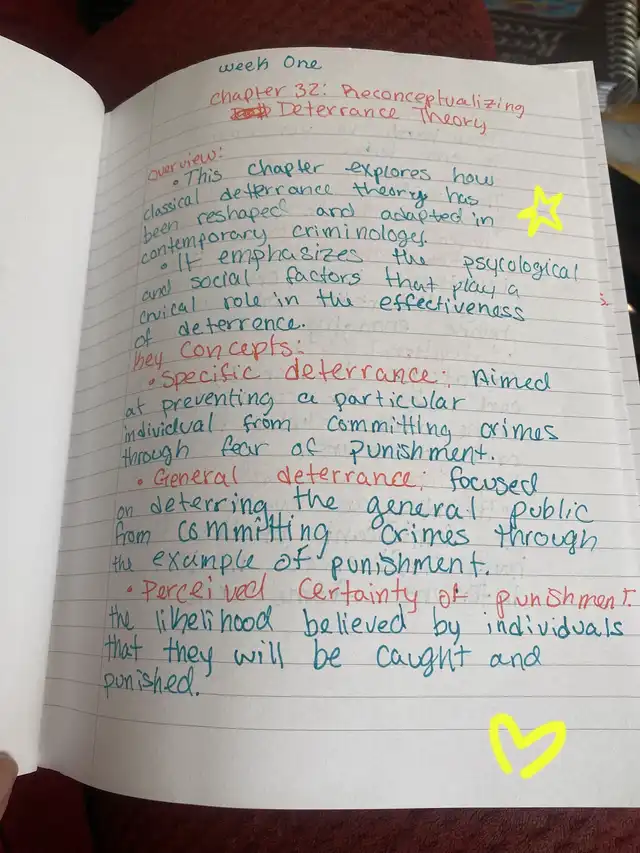 week One
Chapter 32: Reconceptualizing
Deterrance Theory
overview:
• This chapter explores how
classical deterrance theory has
been reshaped and adapted in
contemporary criminologes.
• It emphasizes the psycological
and social factors that play a
crucial role in the effectiveness
of deterrence.
key concepts:
• Specific deterrance: Aimed
at preventing a particular
individual from committing crimes
through fear of punishment.
• General deterrance: focused
on deterring the general public
from committing crimes through
the example of punishment.
• Perceived certainty of punishment:
the likelihood believed by individuals
that they will be caught and
punished.